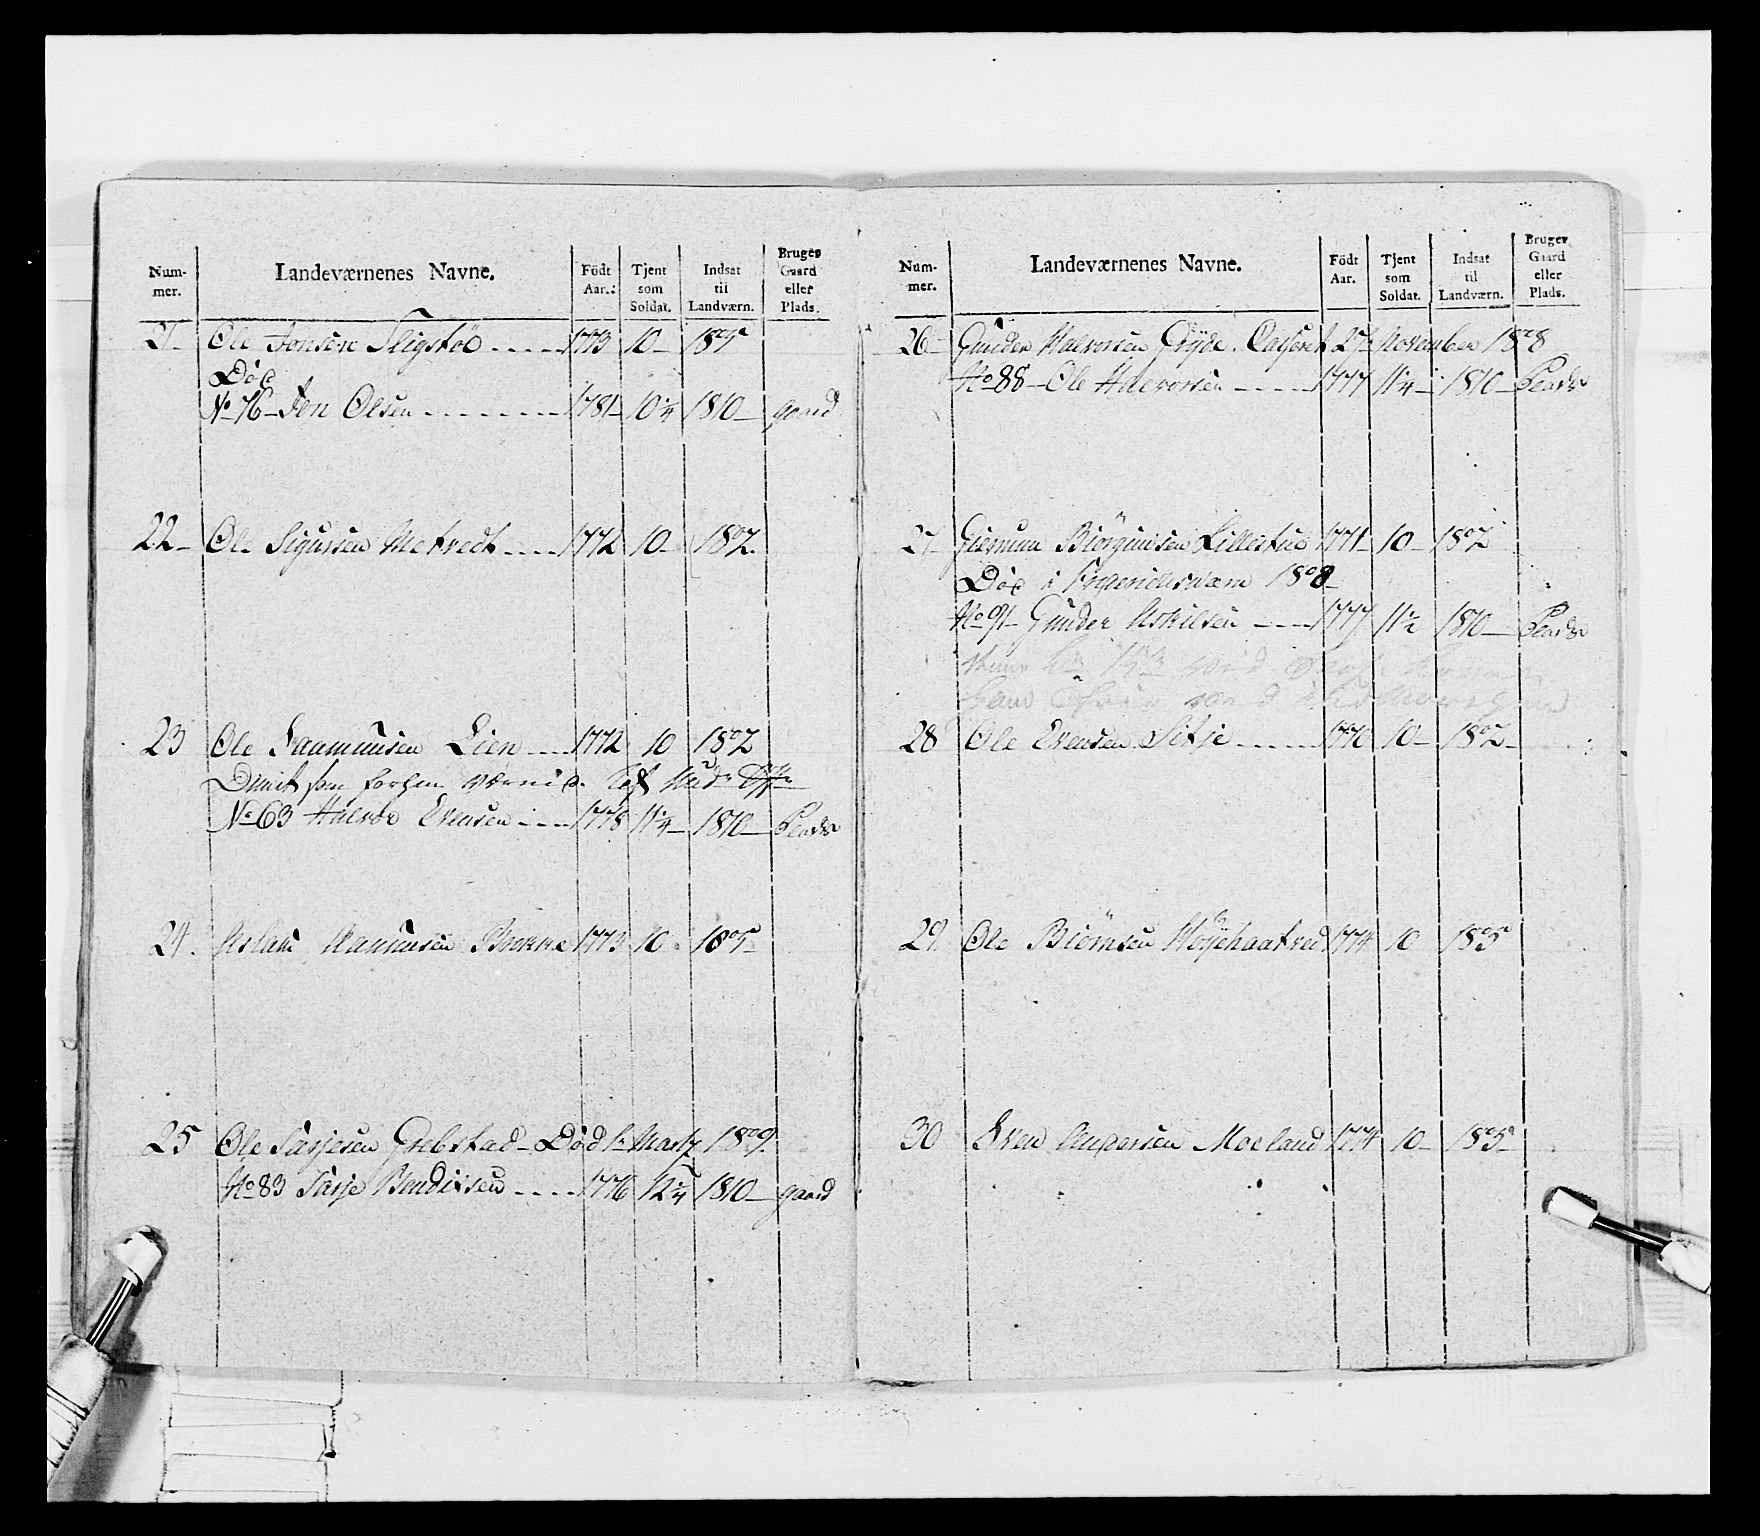 Num-mer. Landeværnenes Navne. Födt Aar.: Tjent som Soldat. Indsat til Landværn. Bruger Gaard eller Plads.
21 Ole Jonsen 1773 10 1805
Död
No 76 Jon Olsen 1781 10 1/4 1810 gaard
22 Ole Sigursen Metvedt 1772 10 1802.
23 Ole Aamunsen Lien 1772 10 1802
Dimit som
No 63 Halvor Evensen 1778 11 1/4 1810 Plads
24. Aslak Aamunsen 1773 10 1805
25 Ole Tarjesen Grebstad - Död 1 Martz 1809.
No 83 Tarje Bendixsen 1776 12 1/4 1810 gaard
Num-mer. Landeværnenes Navne. Födt Aar. Tjent som Soldat. Indsat til Landværn. Bruger Gaard eller Plads.
26 Gunder Halvorsen Casseret 27 November 1808
No 88 Ole Halvorsen 1777 11 1/4 1810 Plads
27 Giermun Biörgunsen Lillestue 1771 10 1802
Död i Frideriksværn 1808
No 91 Gunder Askilsen 1777 11 1/2 1810 Plads
28 Ole Evensen 1770 10 1802
29. Ole Biörnsen 1774 10 1805
30 Even Andersen Moeland 1774 10 1805